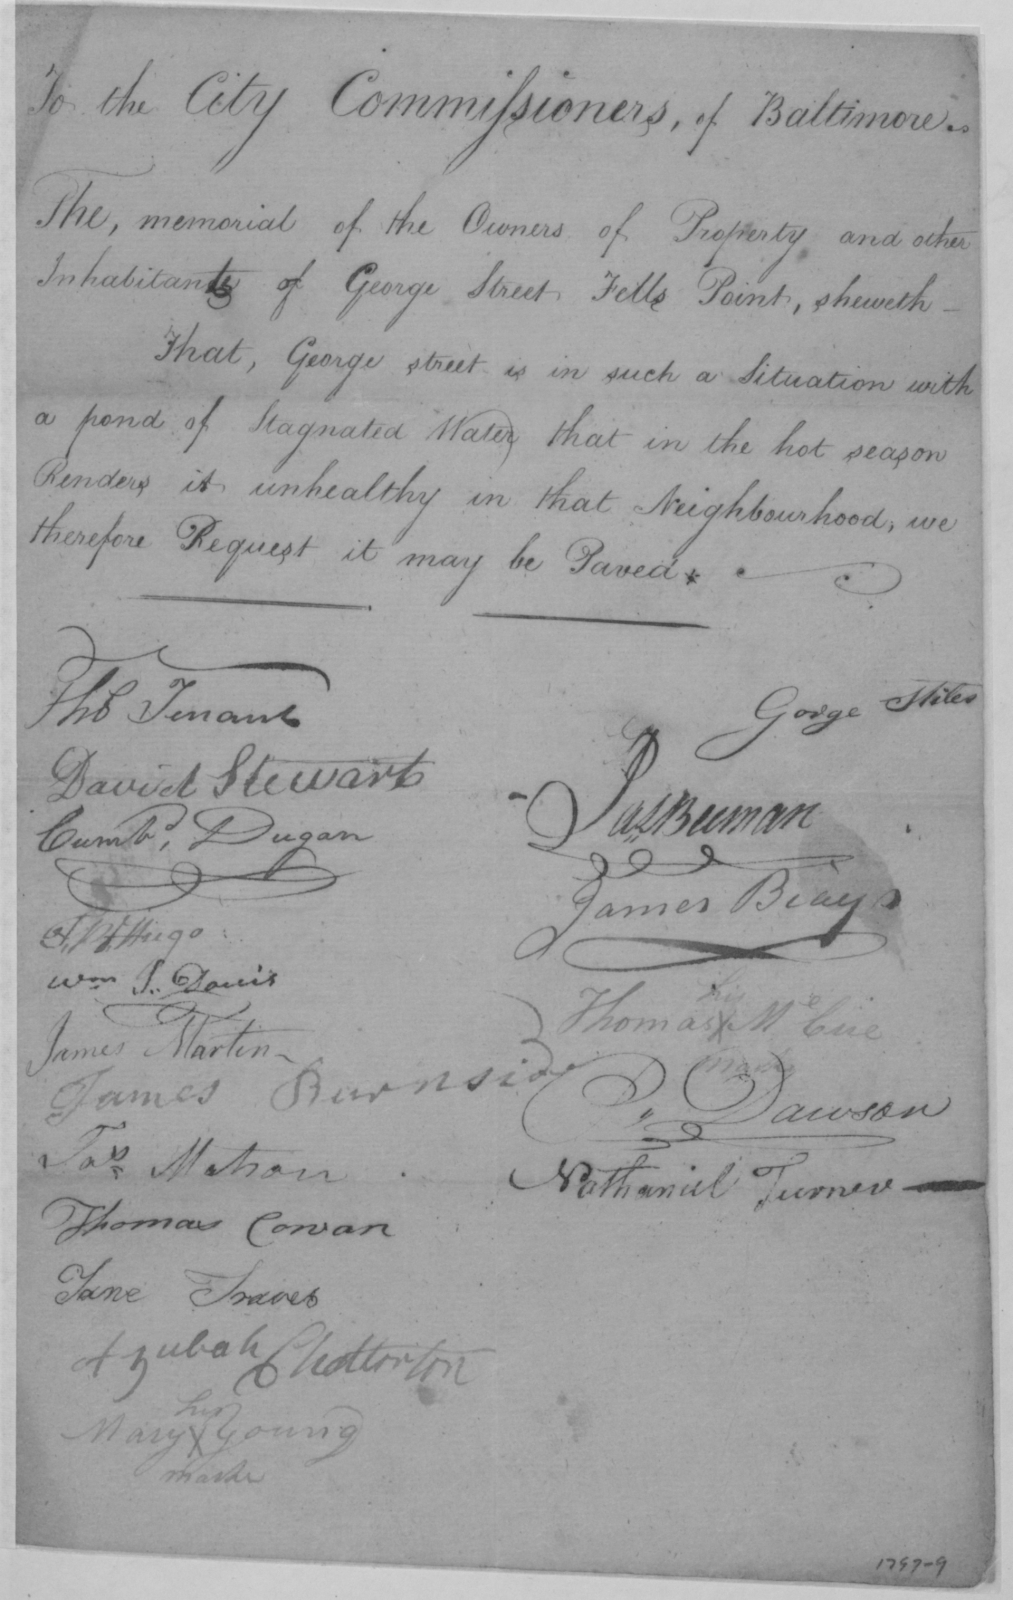 To the City Commissioners, of Baltimore.
The, memorial of the Owners of Property and other
Inhabitants of George Street Fells Point, sheweth —
That, George street is in such a Situation with
a pond of Stagnated Water that in the hot season
Renders it unhealthy in that Neighbourhood, we
therefore Request it may be Paved.
Thos Tenant
David Stewart
Cumbd. Dugan
Hugo
Wm J. Davis
James Martin
James Burnside
Jas Mahon
Thomas Cowan
Jane Traves
Azubah Chatterton
her
Mary X Young
marke
Gorge Stiles
Jas Beeman
James Biays
his
Thomas X McCue
mark
P. Dawson
Nathaniel Turner
1797-9